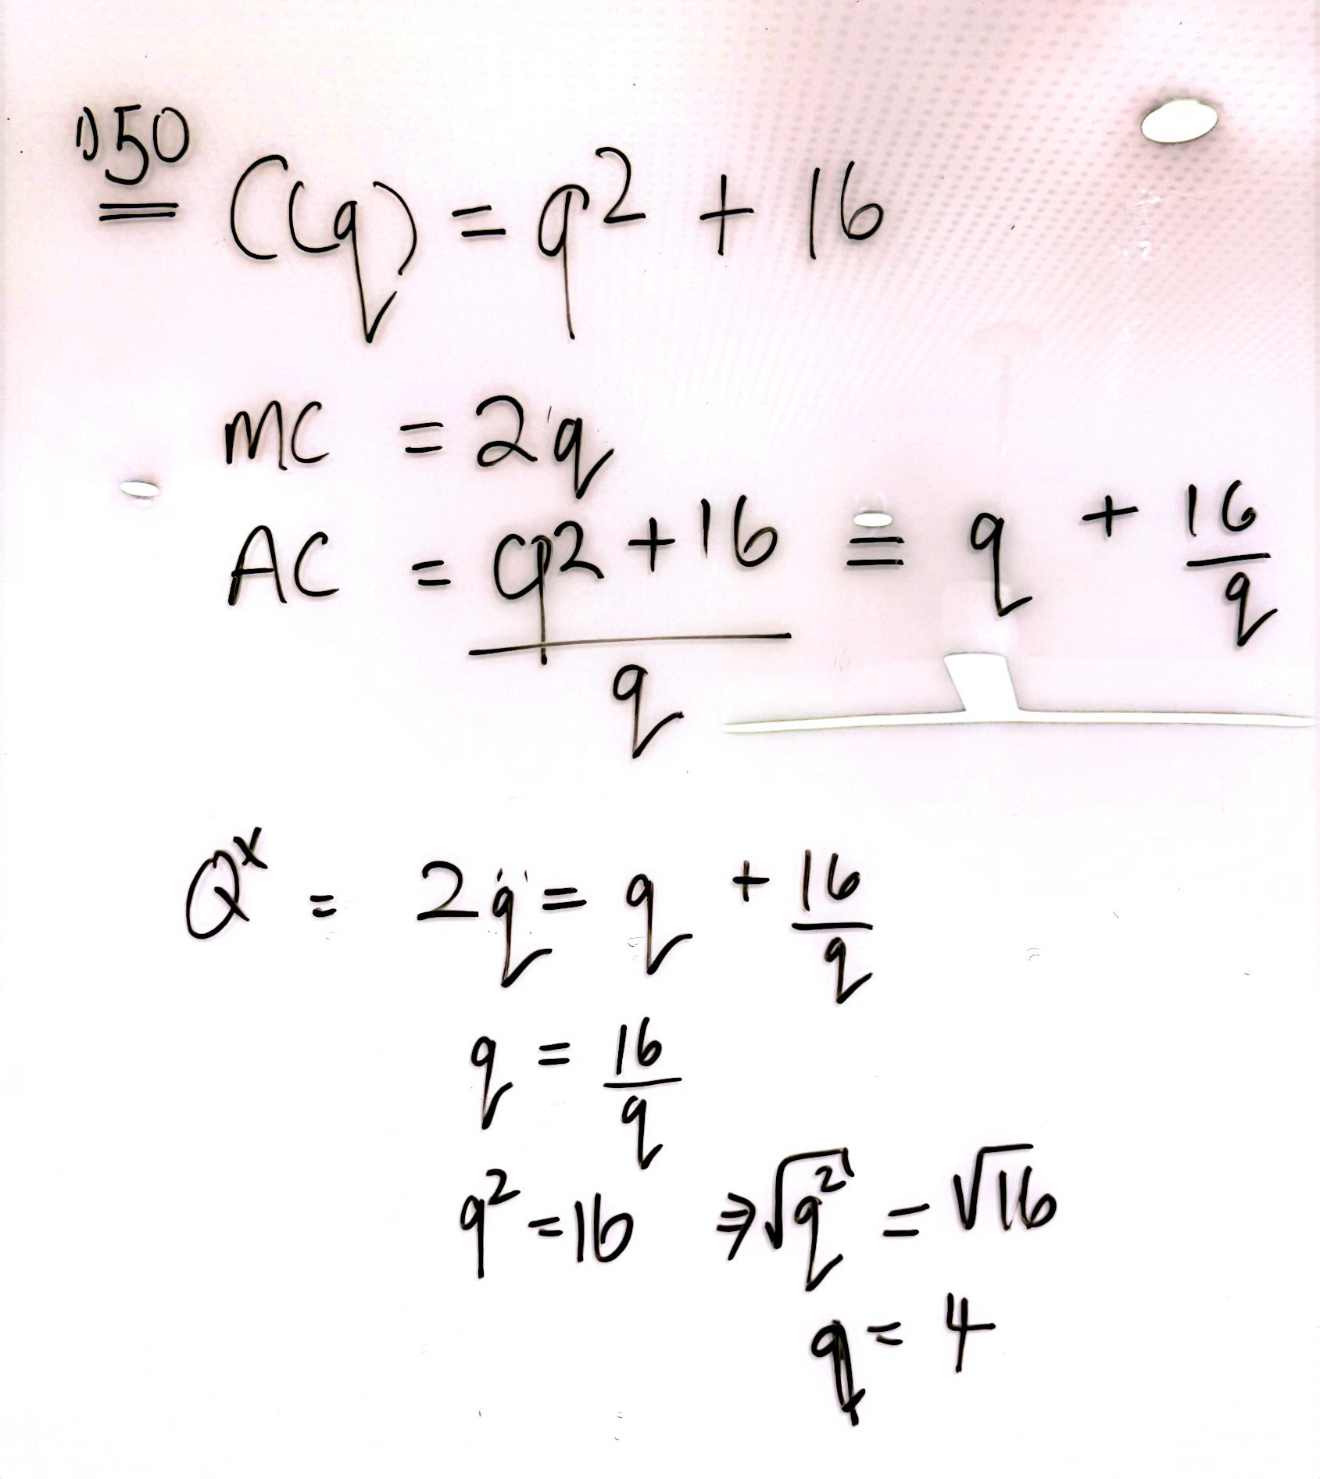 1) 50
C(q) = q² + 16
MC = 2q
AC = q² + 16 / q = q + 16/q
Q* = 2q = q + 16/q
q = 16/q
q² = 16 ⇒ √q² = √16
q = 4